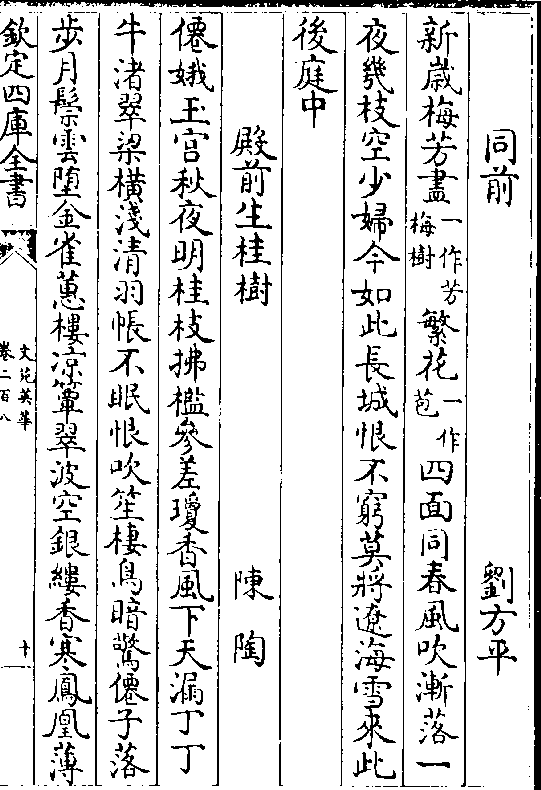 同前　劉方平
新歲梅芳盡一作芳梅樹繁花一作苞四面同春風吹漸落一
夜幾枝空少婦今如此長城恨不窮莫將遼海雪來此
後庭中
殿前生桂樹　陳陶
僊娥玉宫秋夜明桂枝拂檻參差瓊香風下天漏丁丁
牛渚翠梁橫淺清羽帳不眠恨吹笙棲鳥暗驚僊子落
步月鬃雲墮金雀蕙樓凉簟翠波空銀縷香寒鳳凰薄
欽定四庫全書
文苑英華
卷二百八
十一